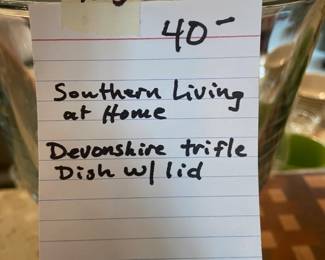 40-
Southern Living
at Home
Devonshire trifle
Dish w/ lid